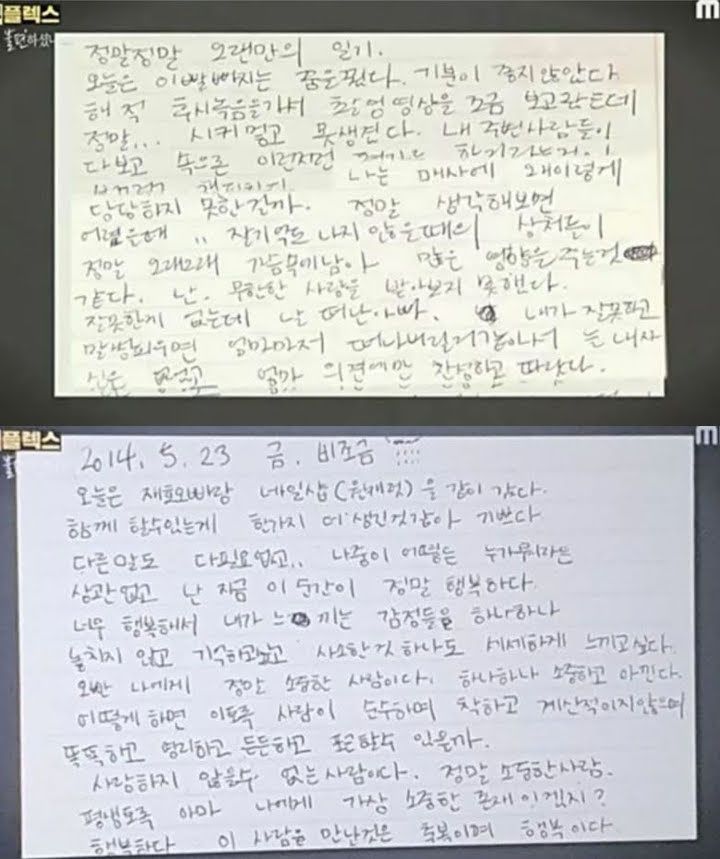 플렉스
M
불편하셨나
정말정말 오랜만의 일기.
오늘은 이빨빠지는 꿈을꿨다. 기분이 좋지않았다
해적 후시녹음을가서 촬영영상을 조금 보고왔는데
정말... 시커멓고 못생긴다. 내 주변사람들이
다보고 속으론 이런저런
나는 매사에 왜이렇게
당당하지 못한걸까. 정말 생각해보면
어렸을때 .. 잘기억도 나지 않을때의 상처들이
정말 오래오래 가슴속에남아 많은 영향을 주는것
같다. 난. 무한한 사랑을 받아보지 못했다.
잘못한게 없는데 날 떠난아빠. 내가 잘못하고
말썽피우면 엄마마저 떠나버릴거같아서 는 내자
신을 엄마 의견에만 찬성하고 따랐다.
플렉스
M
불
2014. 5. 23 금. 비조금
오늘은 재효오빠랑 네일샵(원캐럿)을 같이 갔다.
함께 할수있는게 한가지 더 생긴것같아 기쁘다
다른말도 다필요없고.. 나중이 어떻든 누가뭐라든
상관없고 난 지금 이순간이 정말 행복하다.
너무 행복해서 내가 느끼는 감정들을 하나하나
놓치지 않고 기억하고싶고 사소한것하나도 세세하게 느끼고싶다.
오빤 나에게 정말 소중한 사람이다. 하나하나 소중하고 아낀다.
어떻게 하면 이토록 사람이 순수하며 착하고 계산적이지않으며
똑똑하고 영리하고 든든하고 포근할수 있을까.
사랑하지 않을수 없는사람이다. 정말 소중한사람.
평생토록 아마 나에게 가장 소중한 존재이겠지?
행복하다 이 사람을 만난것은 축복이며 행복이다